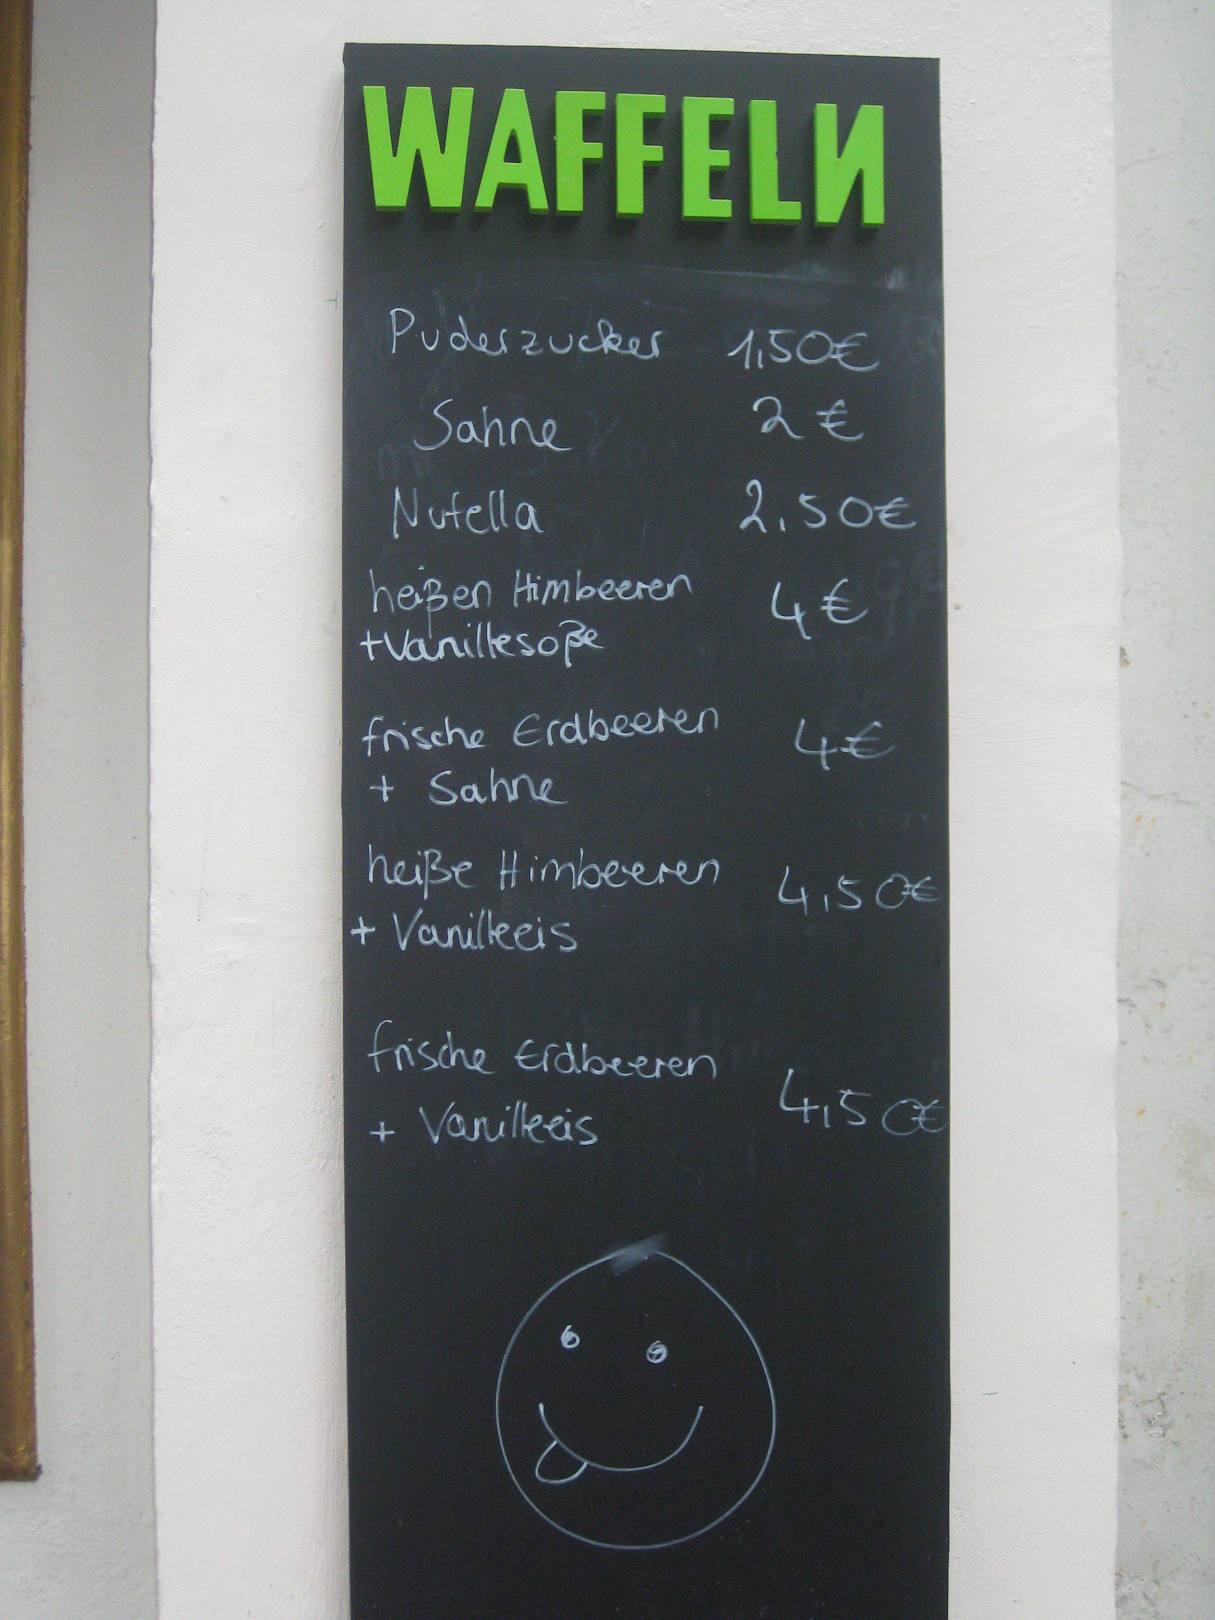 WAFFELN
Puderzucker 1,50€
Sahne 2 €
Nutella 2,50€
heißen Himbeeren 4 €
+Vanillesoße
frische Erdbeeren 4€
+ Sahne
heiße Himbeeren 4,50€
+ Vanilleeis
frische Erdbeeren 4,50€
+ Vanilleeis